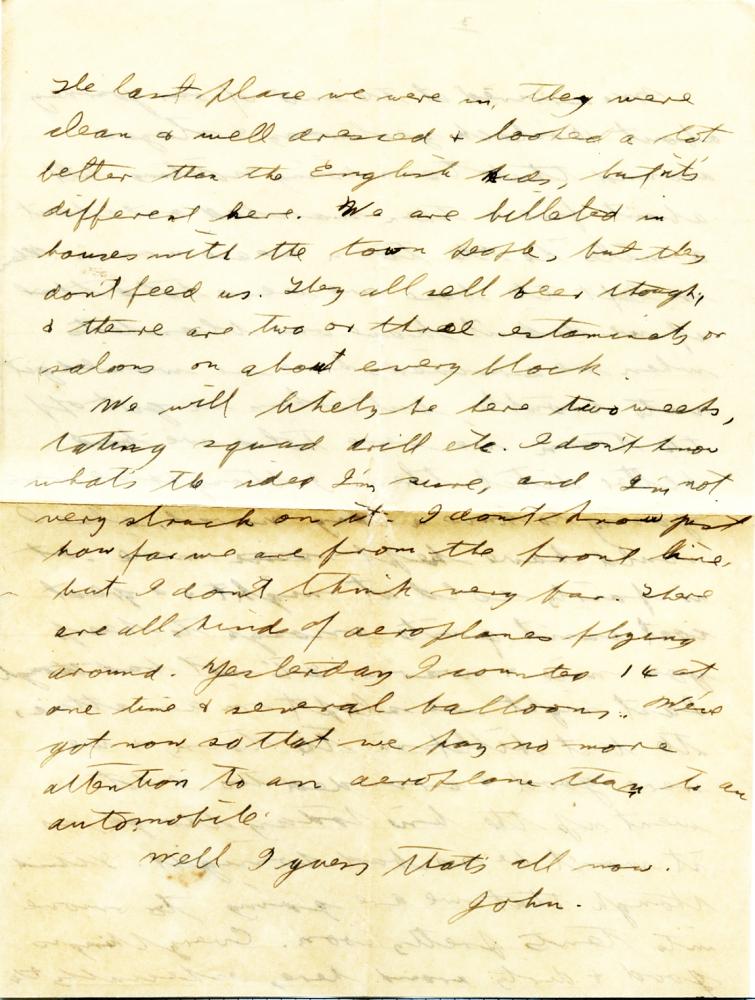 The last place we were in, they were
clean & well dressed & looked a lot
better than the English kids, but it's
different here. We are billeted in
houses with the town people, but they
don't feed us. They all sell beer though,
& there are two or three estaminets or
saloons on about every block.
We will likely be here two weeks,
taking squad drill etc. I don't know
what's the idea I'm sure, and I'm not
very struck on it. I don't know just
how far we are from the front line,
but I don't think very far. There
are all kinds of aeroplanes flying
around. Yesterday I counted 14 at
one time & several balloons. We've
got now so that we pay no more
attention to an aeroplane than to an
automobile.
Well I guess that's all now.
John.